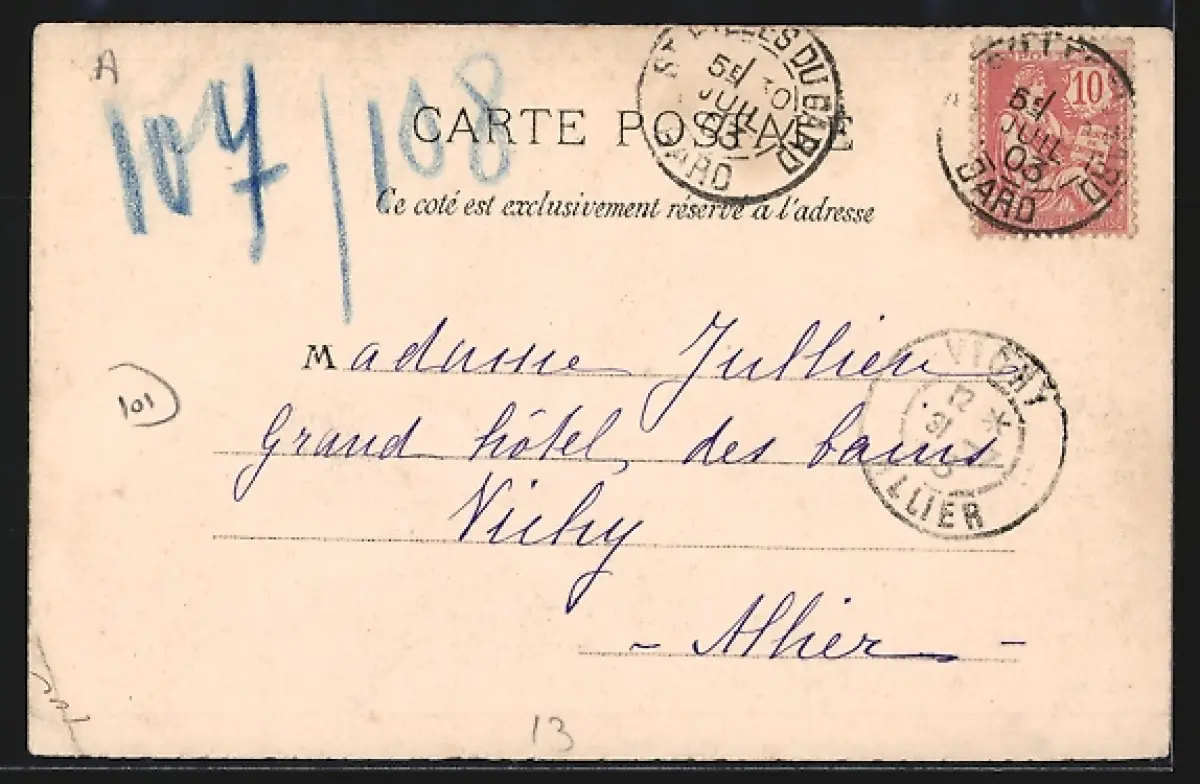 A
107/108
CARTE POSTALE
Ce coté est exclusivement réservé à l'adresse
ST GILLES DU GARD
5E 10
JUIL
03
GARD
10
5E
JUIL
03
GARD
Madame Jullien
Grand hôtel des bains
Vichy
- Allier -
VICHY
ALLIER
101
13